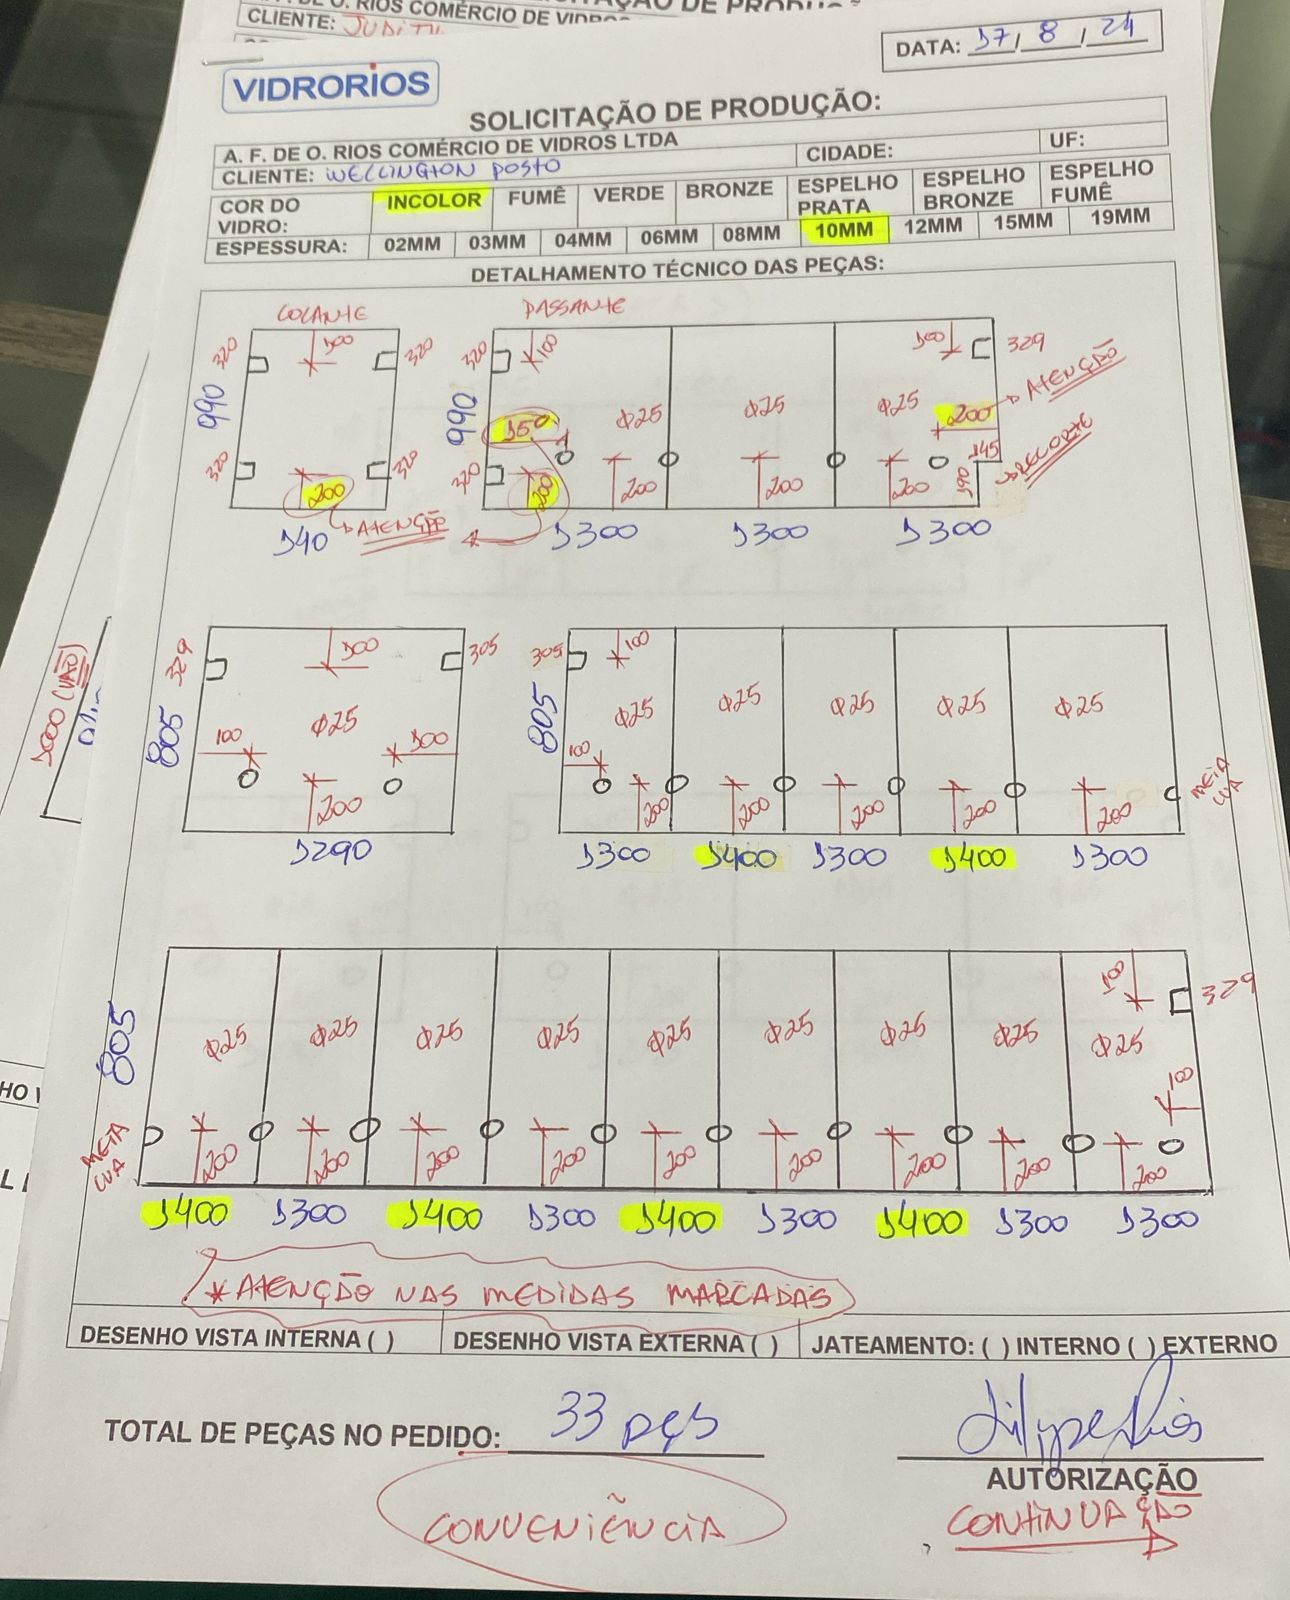 A. F. DE O. RIOS COMÉRCIO DE VIDROS
CLIENTE: JUDITH
DATA: 17/8/24
VIDRORIOS
SOLICITAÇÃO DE PRODUÇÃO:
A. F. DE O. RIOS COMÉRCIO DE VIDROS LTDA
CIDADE:
UF:
CLIENTE: WELLINGTON POSTO
COR DO VIDRO: INCOLOR FUMÊ VERDE BRONZE ESPELHO PRATA ESPELHO BRONZE ESPELHO FUMÊ
ESPESSURA: 02MM 03MM 04MM 06MM 08MM 10MM 12MM 15MM 19MM
DETALHAMENTO TÉCNICO DAS PEÇAS:
COLANTE PASSANTE
320 100 320 320 100 100 329
990 990 Φ25 Φ25 Φ25 200 → ATENÇÃO
150 145 → RECORTE
320 320 320 190
200 200 200 200 200
→ ATENÇÃO
140 1300 1300 1300
329 100 305 305 100
805 Φ25 805 Φ25 Φ25 Φ25 Φ25 Φ25
100 100 100
200 200 200 200 200 200 MEIA LUA
1290 1300 1400 1300 1400 1300
1000 (VÃO)
100 329
805 Φ25 Φ25 Φ25 Φ25 Φ25 Φ25 Φ25 Φ25 Φ25
100
MEIA LUA 200 200 200 200 200 200 200 200 200
1400 1300 1400 1300 1400 1300 1400 1300 1300
* ATENÇÃO NAS MEDIDAS MARCADAS
DESENHO VISTA INTERNA ( ) DESENHO VISTA EXTERNA ( ) JATEAMENTO: ( ) INTERNO ( ) EXTERNO
TOTAL DE PEÇAS NO PEDIDO: 33 pçs
Filype Rios
AUTORIZAÇÃO
CONVENIÊNCIA
CONTINUAÇÃO